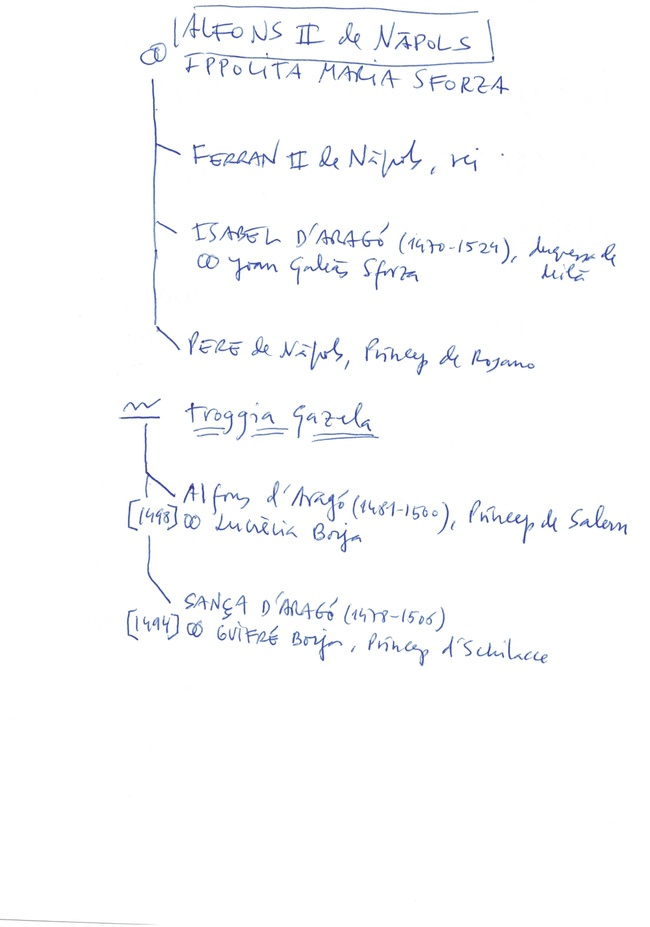 ALFONS II de NÀPOLS
∞ IPPOLITA MARIA SFORZA
FERRAN II de Nàpols, rei
ISABEL D'ARAGÓ (1470-1524), duquessa de Milà
∞ Joan Galeàs Sforza
PERE de Nàpols, Príncep de Rosano
Troggia Gazela
Alfons d'Aragó (1481-1500), Príncep de Salern
[1498] ∞ Lucrècia Borja
SANÇA D'ARAGÓ (1478-1506)
[1494] ∞ GUIFRÉ Borja, Príncep d'Schilacce